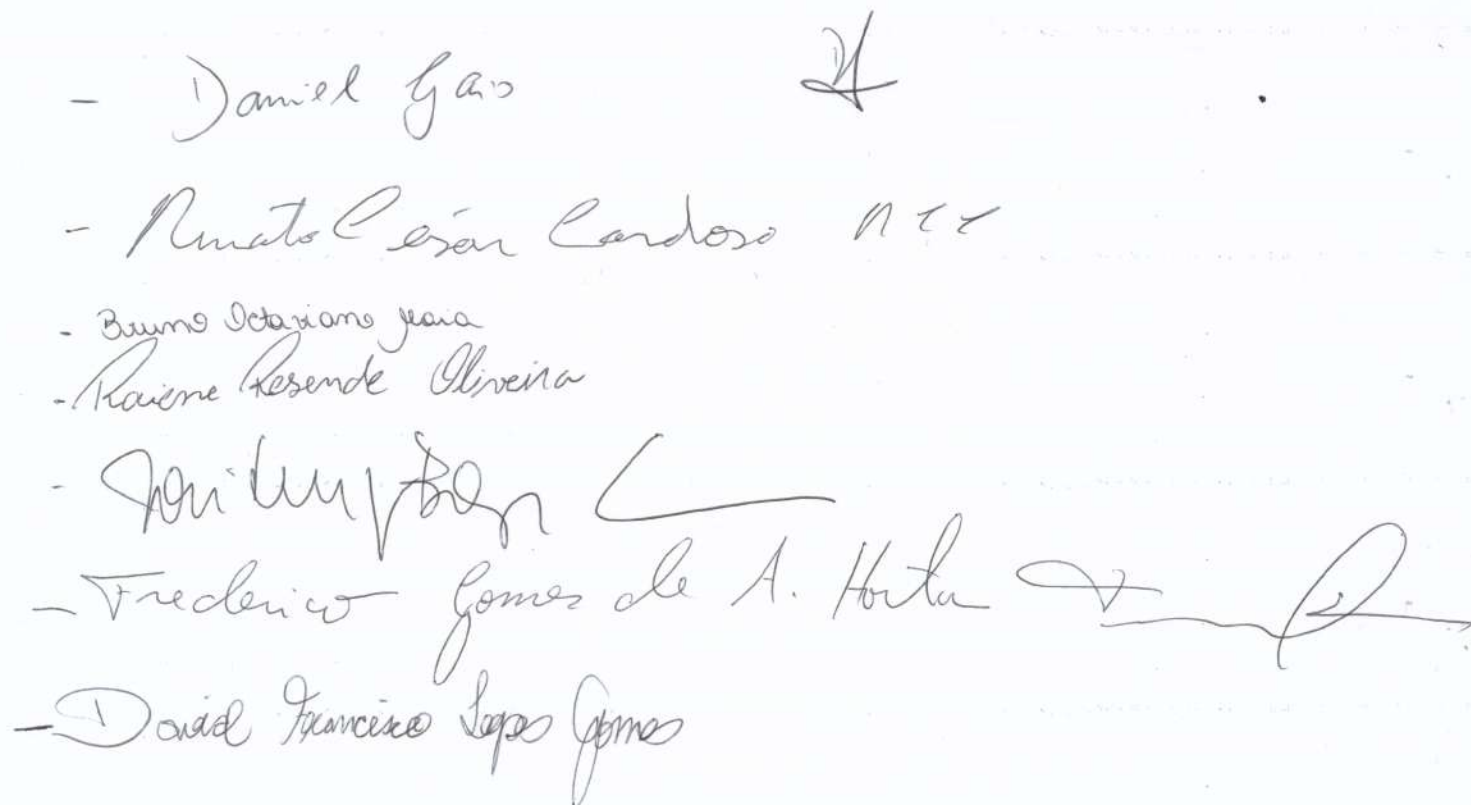 - Daniel Gaio
- Renato César Cardoso RCC
- Bruno Octaviano Maia
- Raiene Resende Oliveira
-
- Frederico Gomes de A. Horta
- David Francisco Lopes Gomes